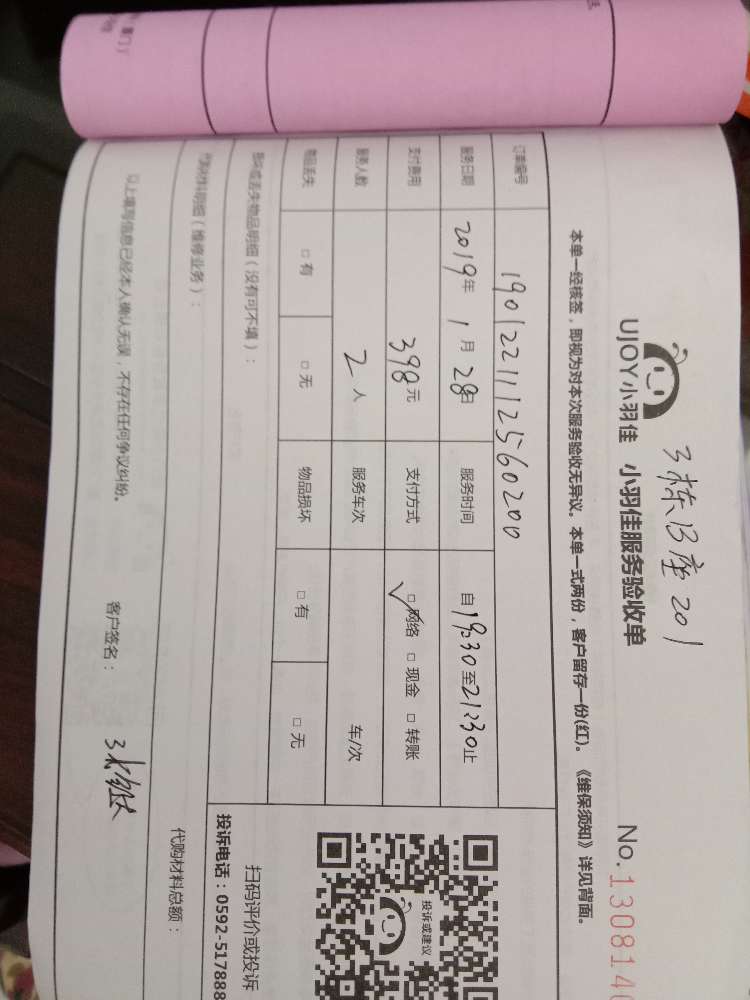 3栋B座201
UJOY小羽佳 小羽佳服务验收单 No.130814
本单一经核签，即视为对本次服务验收无异议。本单一式两份，客户留存一份(红)。《维保须知》详见背面。
订单编号 1901221112560200
服务日期 2019年1月28日 服务时间 自19:30至21:30止
支付费用 398元 支付方式 □网络 □现金 □转账
服务人数 2人 服务车次 车/次
物品丢失 □有 □无 物品损坏 □有 □无
损坏或丢失物品明细（没有可不填）：
代购材料明细（维修业务）：
代购材料总额：
以上填写信息已经本人确认无误，不存在任何争议纠纷。 客户签名：
投诉或建议
扫码评价或投诉
投诉电话：0592-517888